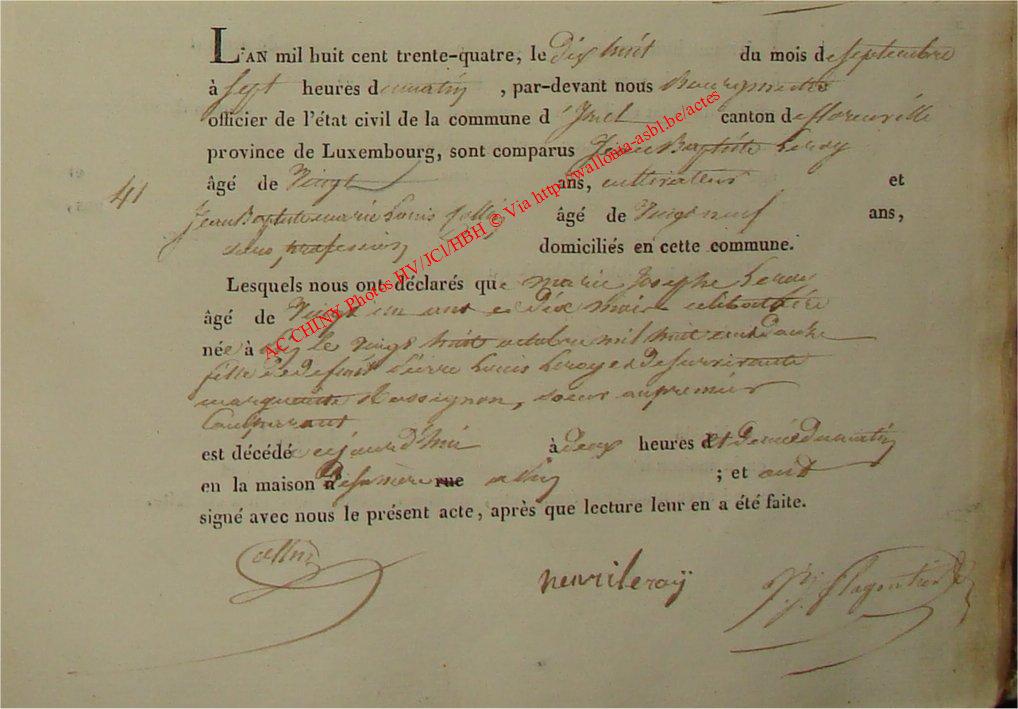 L'AN mil huit cent trente-quatre, le dix huit du mois de septembre
à sept heures du matin , par-devant nous Bourgmestre
officier de l'état civil de la commune d' canton de florenville
province de Luxembourg, sont comparus Jean Baptiste Leroy
âgé de Vingt ans, cultivateur et
41
Jean Baptiste marie Louis âgé de Vingt neuf ans,
sans profession domiciliés en cette commune.
Lesquels nous ont déclarés que marie Josephe Leroy
âgé de Vingt un ans et dix mois celibataire
née à le vingt huit octobre mil huit cent douze
fille de defunt Pierre Louis Leroy et de survivante
marguerite Rossignon, soeur au premier
Comparant
est décédée cejourd'hui à deux heures et demie du matin
en la maison de sa mère rue ; et ont
signé avec nous le présent acte, après que lecture leur en a été faite.
henri leroÿ
AC CHINY Photos HV/JCl/HBH © Via http://wallonia-asbl.be/actes